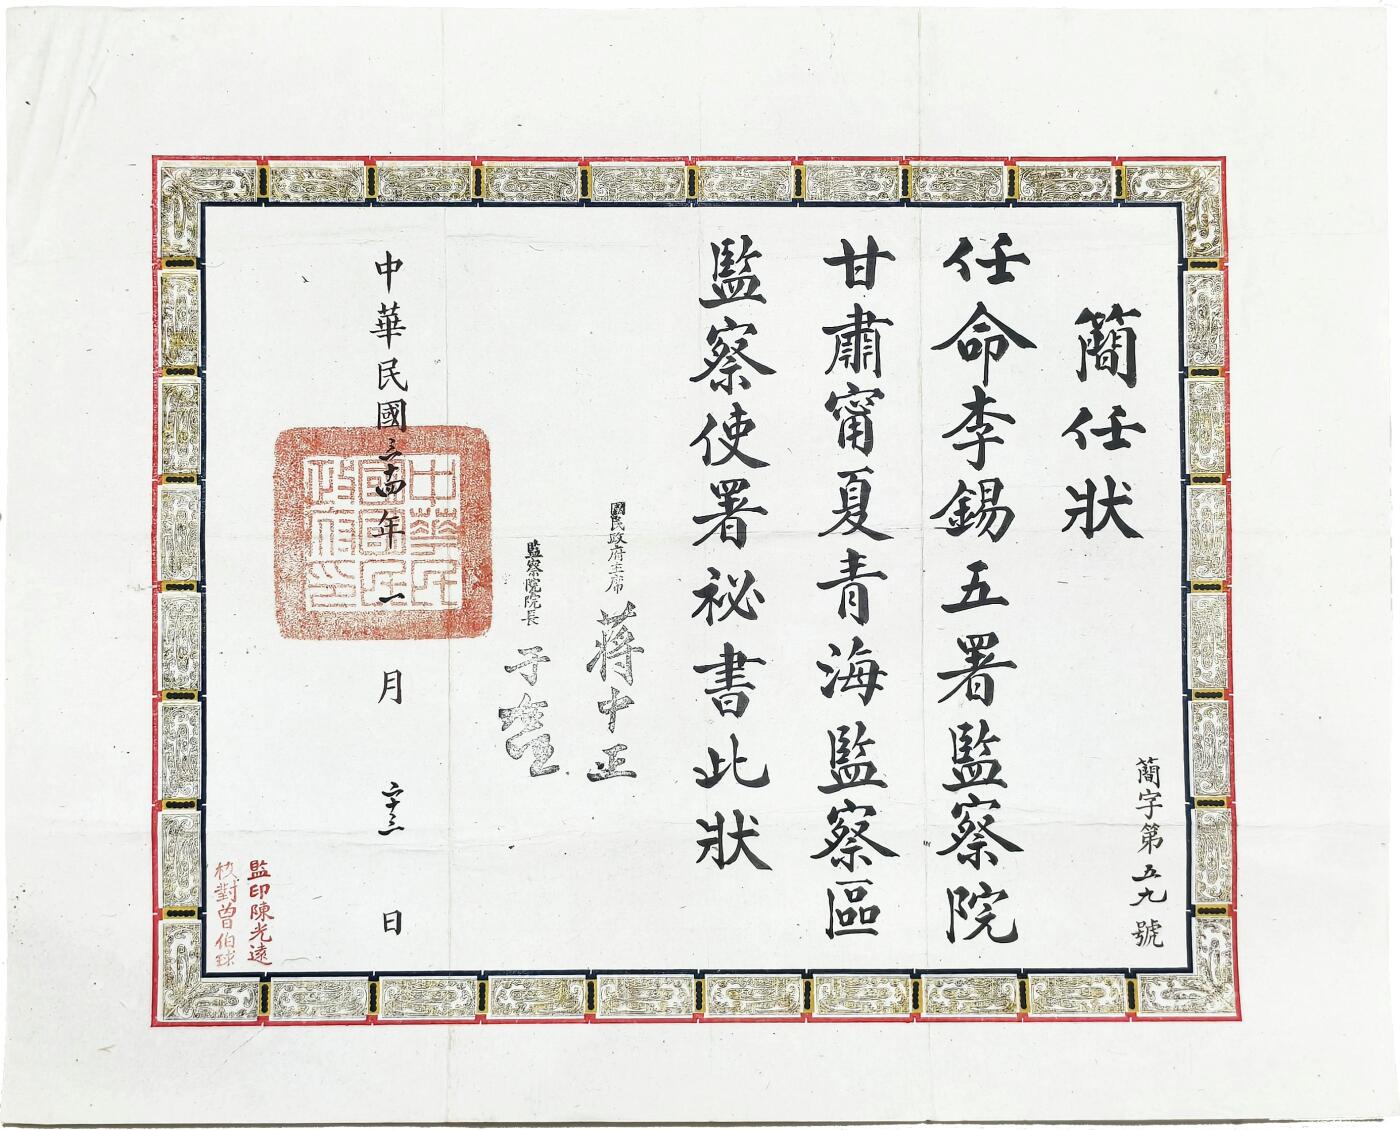 簡字第五九號
簡任狀
任命李錫五署監察院
甘肅甯夏青海監察區
監察使署祕書此狀
國民政府主席 蔣中正
監察院院長 于右任
中華民國三十四年一月二十三日
中華民
國國民
政府印
監印陳光遠
校對曾伯球